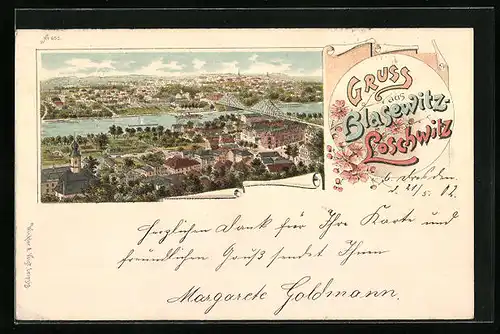 Gruss
aus
Blasewitz-
Loschwitz
b. Dresden
d. 21/5. 02.
Herzlichen Dank für Ihre Karte und
freundlichen Gruß sendet Ihnen
Margarete Goldmann.